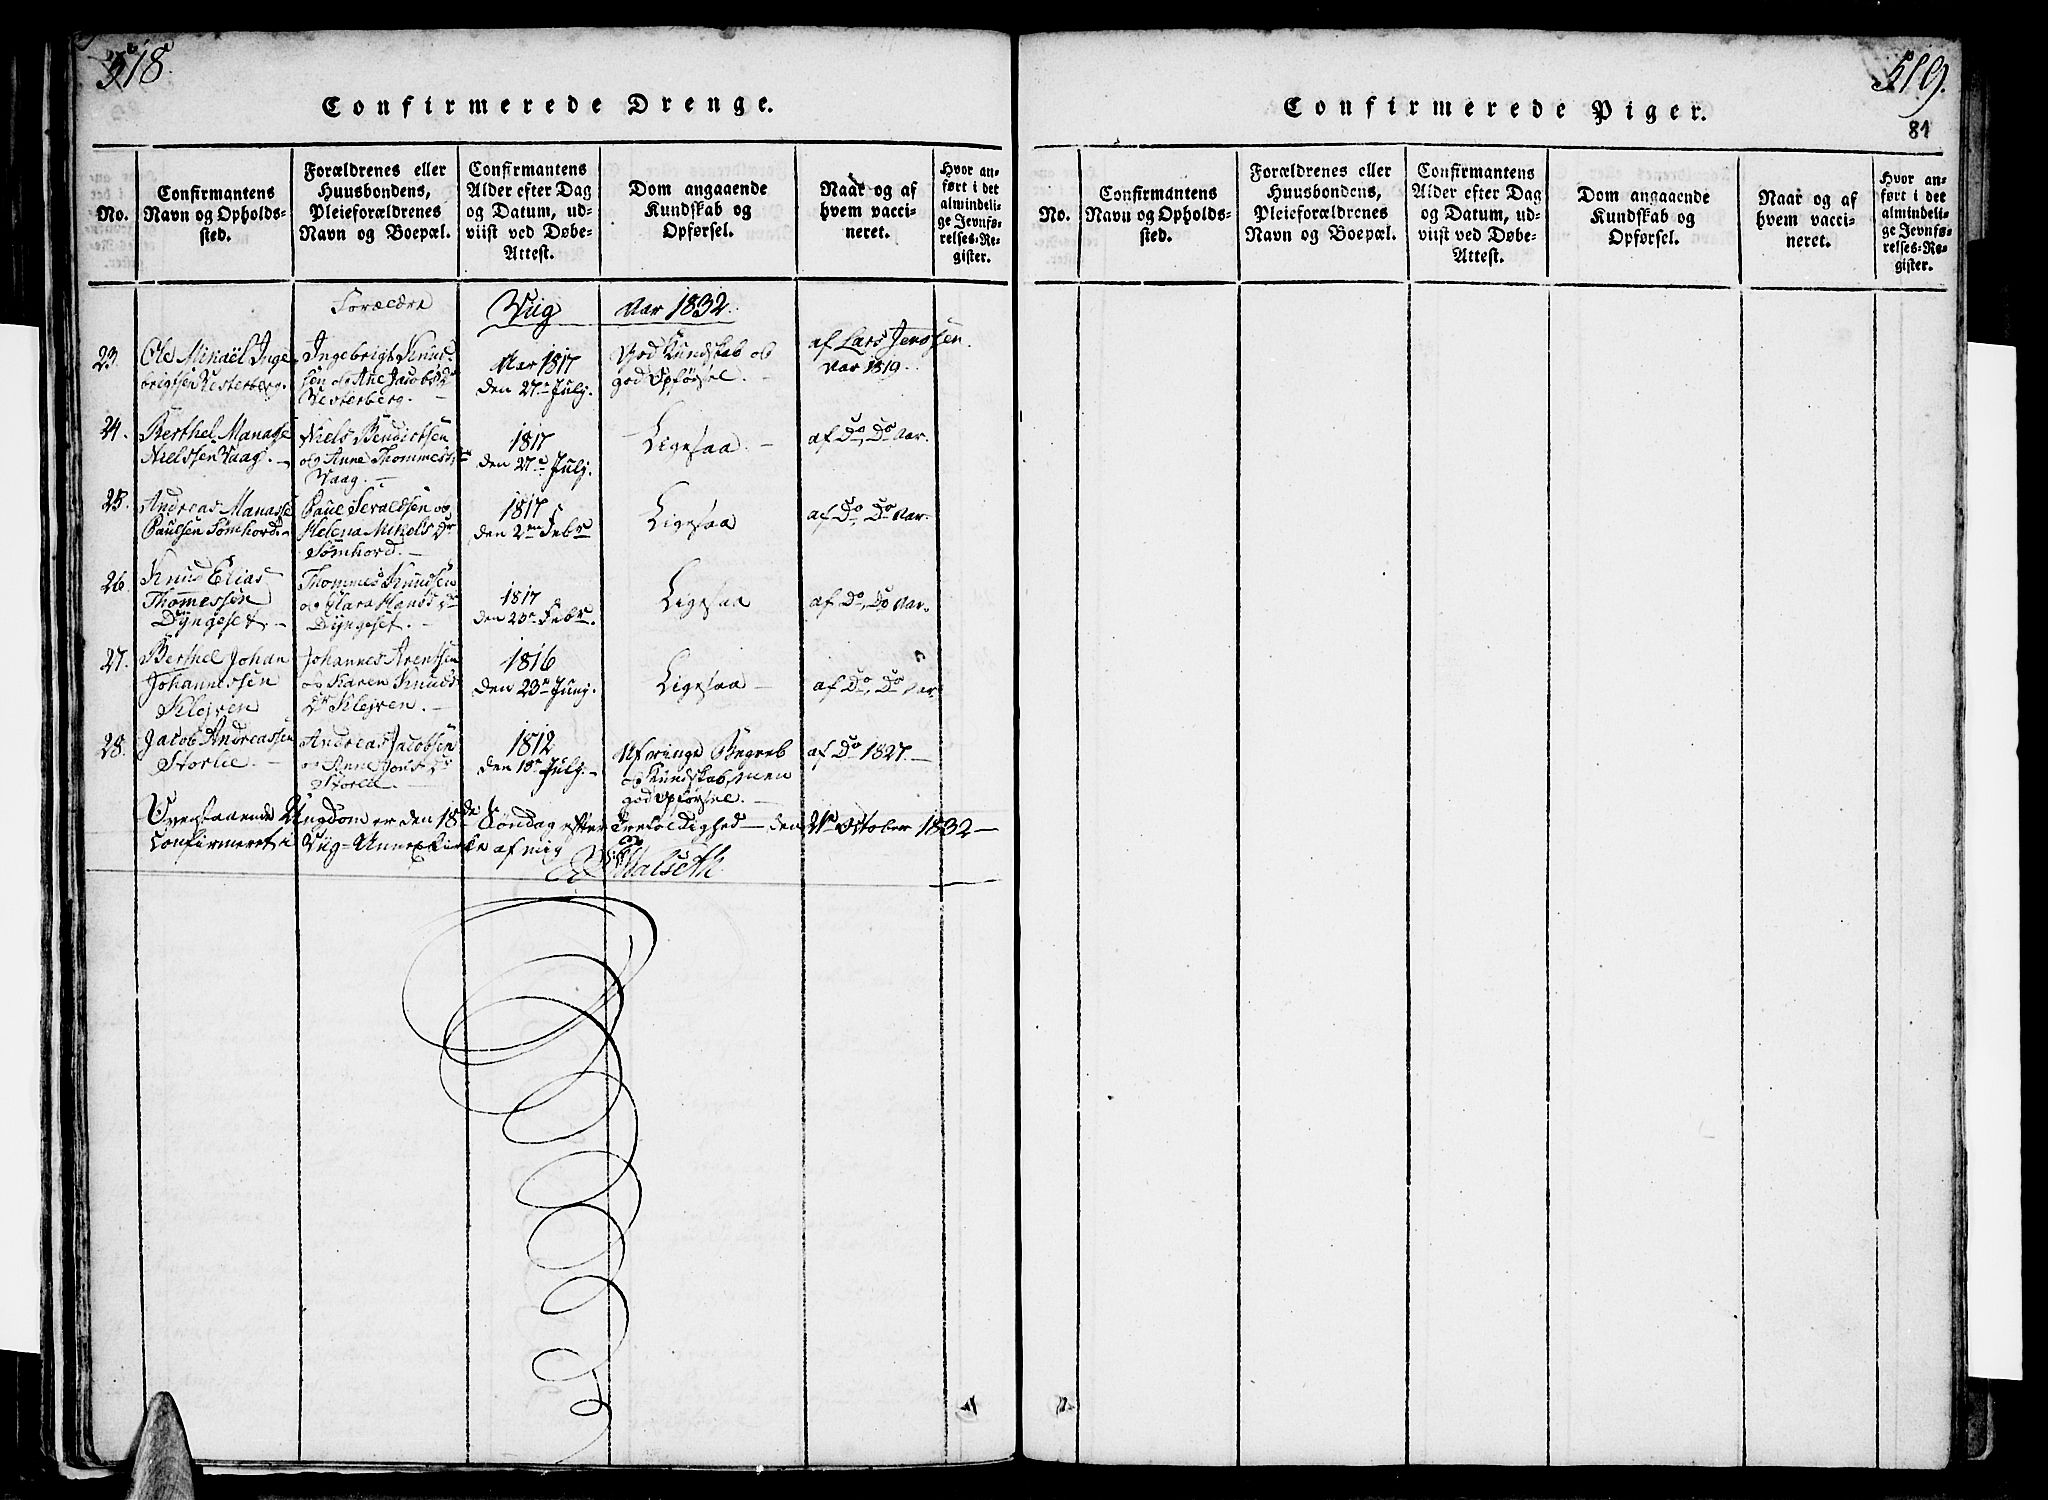 518.
Confirmerede Drenge.
No.
Confirmantens
Navn og Opholds-
sted.
Forældrenes eller
Huusbondens,
Pleieforældrenes
Navn og Boepæl.
Confirmantens
Alder efter Dag
og Datum, ud-
viist ved Døbe-
Attest.
Dom angaaende
Kundskab og
Opførsel.
Naar og af
hvem vacci-
neret.
Hvor an-
ført i det
almindeli-
ge Jevnfø-
relses-Re-
gister.
Forældre
Vug
Aar 1832.
23.
Ole Mikaël Inge
brigtsen Vesterberg.
Ingebrigt Knud-
sen og Ane Jacobs Dr
Vesterberg. –
Aar 1817
den 27de July.
God Kundskab og
god Opførsel. –
af Lars Jenssen.
Aar 1819.
24.
Berthel Manasse
Nielssen Vaag. –
Niels Bendictsen
og Anne Thommesdr
Vaag. –
1817
den 27de July.
Ligesaa. –
af Do, Do Aar.
25.
Andreas Manasse
Paulsen Sømhord. –
Paul Seraldsen og
Helena Mikels Dr
Sømhord. –
1817
den 2den Febr
Ligesaa
af Do, Do Aar.
26.
Knud Elias
Thomessen
Dyngeset. –
Thommes Knudsen
og Clara Hans Dr
Dyngeset. –
1817
den 23de Febr.
Ligesaa
af Do, Do Aar.
27.
Berthel Johan
Johannessen
Klejven
Johannes Arentsen
og Karen Knuds
Dr Klejven. –
1816
den 23de Juny.
Ligesaa –
af Do, Do Aar.
28.
Jacob Andreassen
Storlie. –
Andreas Jacobsen
og Anne Jons Dr
Storlie. –
1812
den 18de July. –
Af ringe Begreb
og Kundskab, men
god Opførsel. –
af Do 1827. –
Ovenstaaende Ungdom er den 18de Søndag efter Trefoldighed – den 21de October 1832 –
Confirmeret i Vug-Annexkirke af mig
Walseth
519.
81
Confirmerede Piger.
No.
Confirmantens
Navn og Opholds-
sted.
Forældrenes eller
Huusbondens,
Pleieforældrenes
Navn og Boepæl.
Confirmantens
Alder efter Dag
og Datum, ud-
viist ved Døbe-
Attest.
Dom angaaende
Kundskab og
Opførsel.
Naar og af
hvem vacci-
neret.
Hvor an-
ført i det
almindeli-
ge Jevnfø-
relses-Re-
gister.